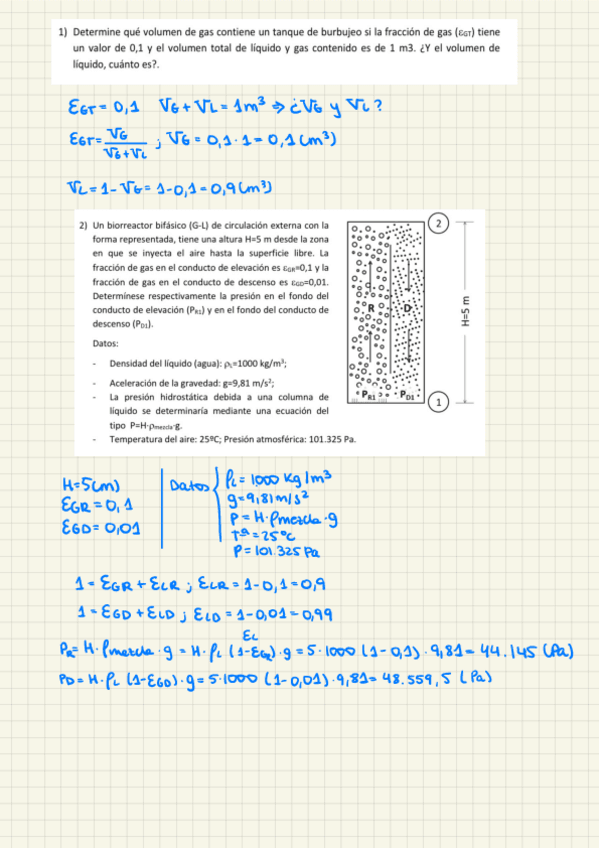 1) Determine qué volumen de gas contiene un tanque de burbujeo si la fracción de gas (εGT) tiene
un valor de 0,1 y el volumen total de líquido y gas contenido es de 1 m3. ¿Y el volumen de
líquido, cuánto es?.
εGT = 0,1 VG + VL = 1m³ ⇒ ¿VG y VL?
εGT = VG / (VG + VL) ; VG = 0,1 · 1 = 0,1 (m³)
VL = 1 - VG = 1 - 0,1 = 0,9 (m³)
2) Un biorreactor bifásico (G-L) de circulación externa con la
forma representada, tiene una altura H=5 m desde la zona
en que se inyecta el aire hasta la superficie libre. La
fracción de gas en el conducto de elevación es εGR=0,1 y la
fracción de gas en el conducto de descenso es εGD=0,01.
Determínese respectivamente la presión en el fondo del
conducto de elevación (PR1) y en el fondo del conducto de
descenso (PD1).
Datos:
- Densidad del líquido (agua): ρL=1000 kg/m³;
- Aceleración de la gravedad: g=9,81 m/s²;
- La presión hidrostática debida a una columna de
líquido se determinaría mediante una ecuación del
tipo P=H·ρmezcla·g.
- Temperatura del aire: 25ºC; Presión atmosférica: 101.325 Pa.
2
R
D
H=5 m
PR1
PD1
1
H=5(m)
εGR = 0,1
εGD = 0,01
Datos
ρL = 1000 kg/m³
g = 9,81 m/s²
P = H · ρmezcla · g
Tª = 25ºC
P = 101.325 Pa
1 = εGR + εLR ; εLR = 1 - 0,1 = 0,9
1 = εGD + εLD ; εLD = 1 - 0,01 = 0,99
εL
PR = H · ρmezcla · g = H · ρL (1 - εGR) · g = 5 · 1000 (1 - 0,1) · 9,81 = 44.145 (Pa)
PD = H · ρL (1 - εGD) · g = 5 · 1000 (1 - 0,01) · 9,81 = 48.559,5 (Pa)